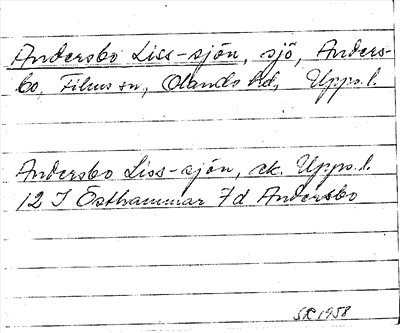 Andersbo Liss-sjön, sjö, Anders-
bo, Films sn, Olands hd, Upps. l.
Andersbo Liss-sjön, ek. Upps. l.
12 I Östhammar 7d Andersbo
SR 1958